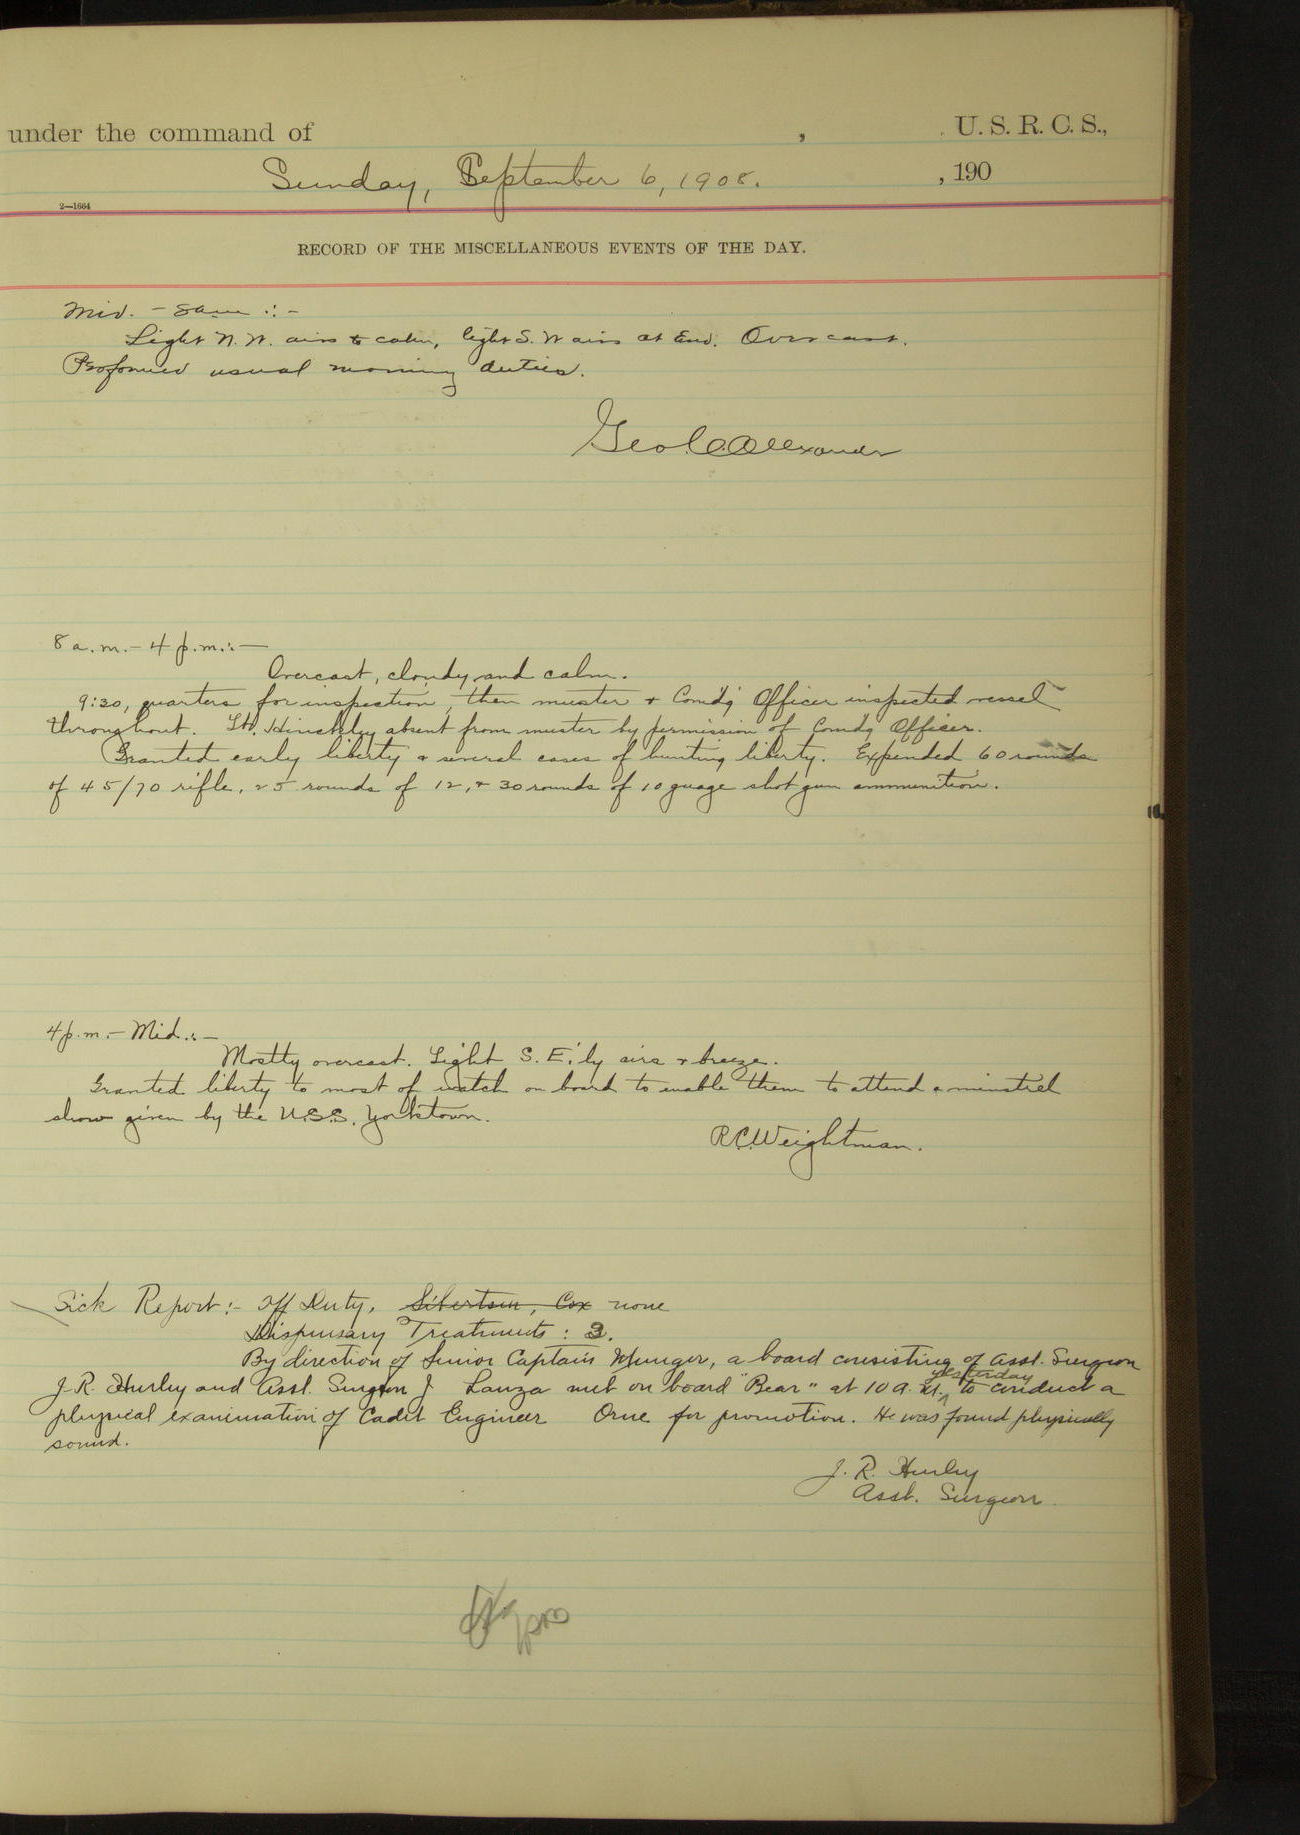 under the command of , U. S. R. C. S.,
Sunday, September 6, 1908. , 190
2—1664
RECORD OF THE MISCELLANEOUS EVENTS OF THE DAY.
Mid. - 8am :-
Light N.W. airs to calm, light S. W airs at End. Overcast.
Performed usual morning duties.
Geo. C. Alexander
8 a.m. - 4 p.m.:-
Overcast, cloudy and calm.
9:30, quarters for inspection, then muster + Comdg Officer inspected vessel
throughout. Lt. Hinckley absent from muster by permission of Comdg Officer.
Granted early liberty & several cases of hunting liberty. Expended 60 rounds
of 45/70 rifle, 25 rounds of 12, + 30 rounds of 10 guage shot gun ammunition.
4 p.m. - Mid.:-
Mostly overcast. Light S. E'ly airs & breeze.
Granted liberty to most of watch on board to enable them to attend a minstrel
show given by the U.S.S. Yorktown.
R.C. Weightman.
Sick Report:- Off Duty. Sibertsen, Cox none
Dispensary Treatments: 3.
By direction of Senior Captain Munger, a board consisting of Asst. Surgeon
yesterday
J. R. Hurley and Asst. Surgeon J Lanza met on board "Bear" at 10 A. M. ^ to conduct a
physical examination of Cadet Engineer Orne for promotion. He was found physically
sound.
J. R. Hurley
Asst. Surgeon.